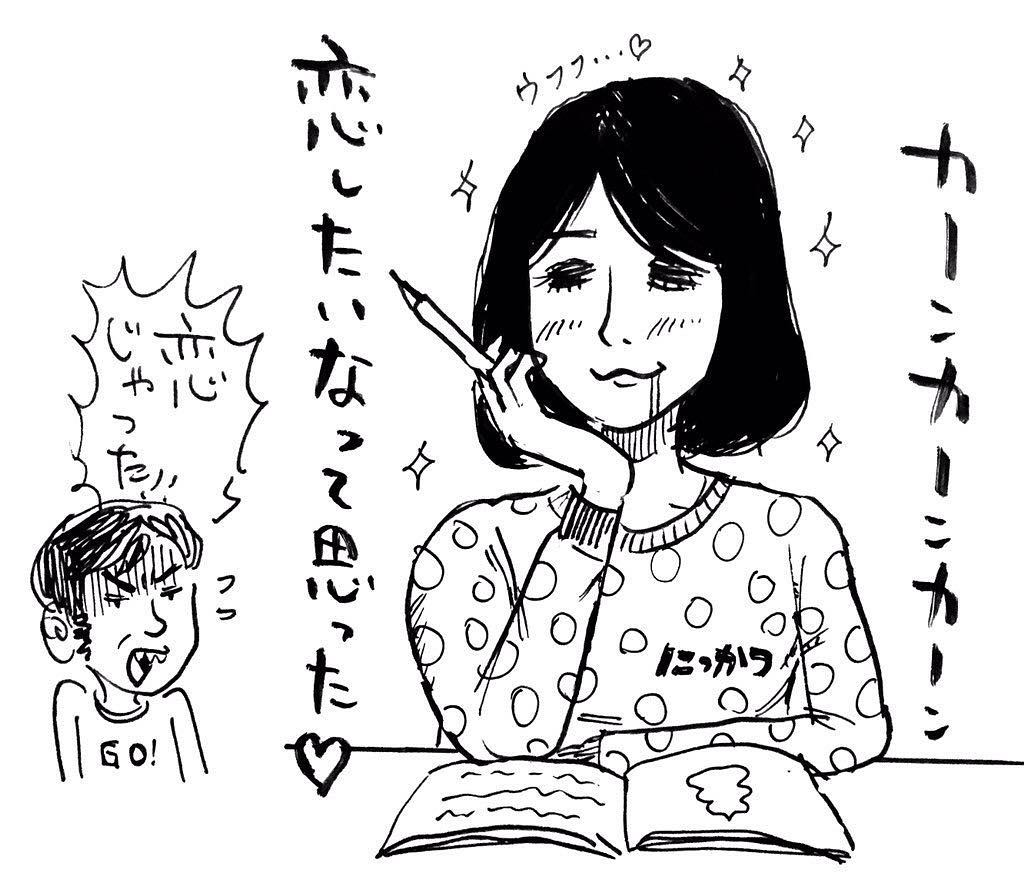 カーンカーンカーン
ウフフ…♡
恋したいなって思った♡
にっかつ
恋
じゃった!!
フフ
GO!